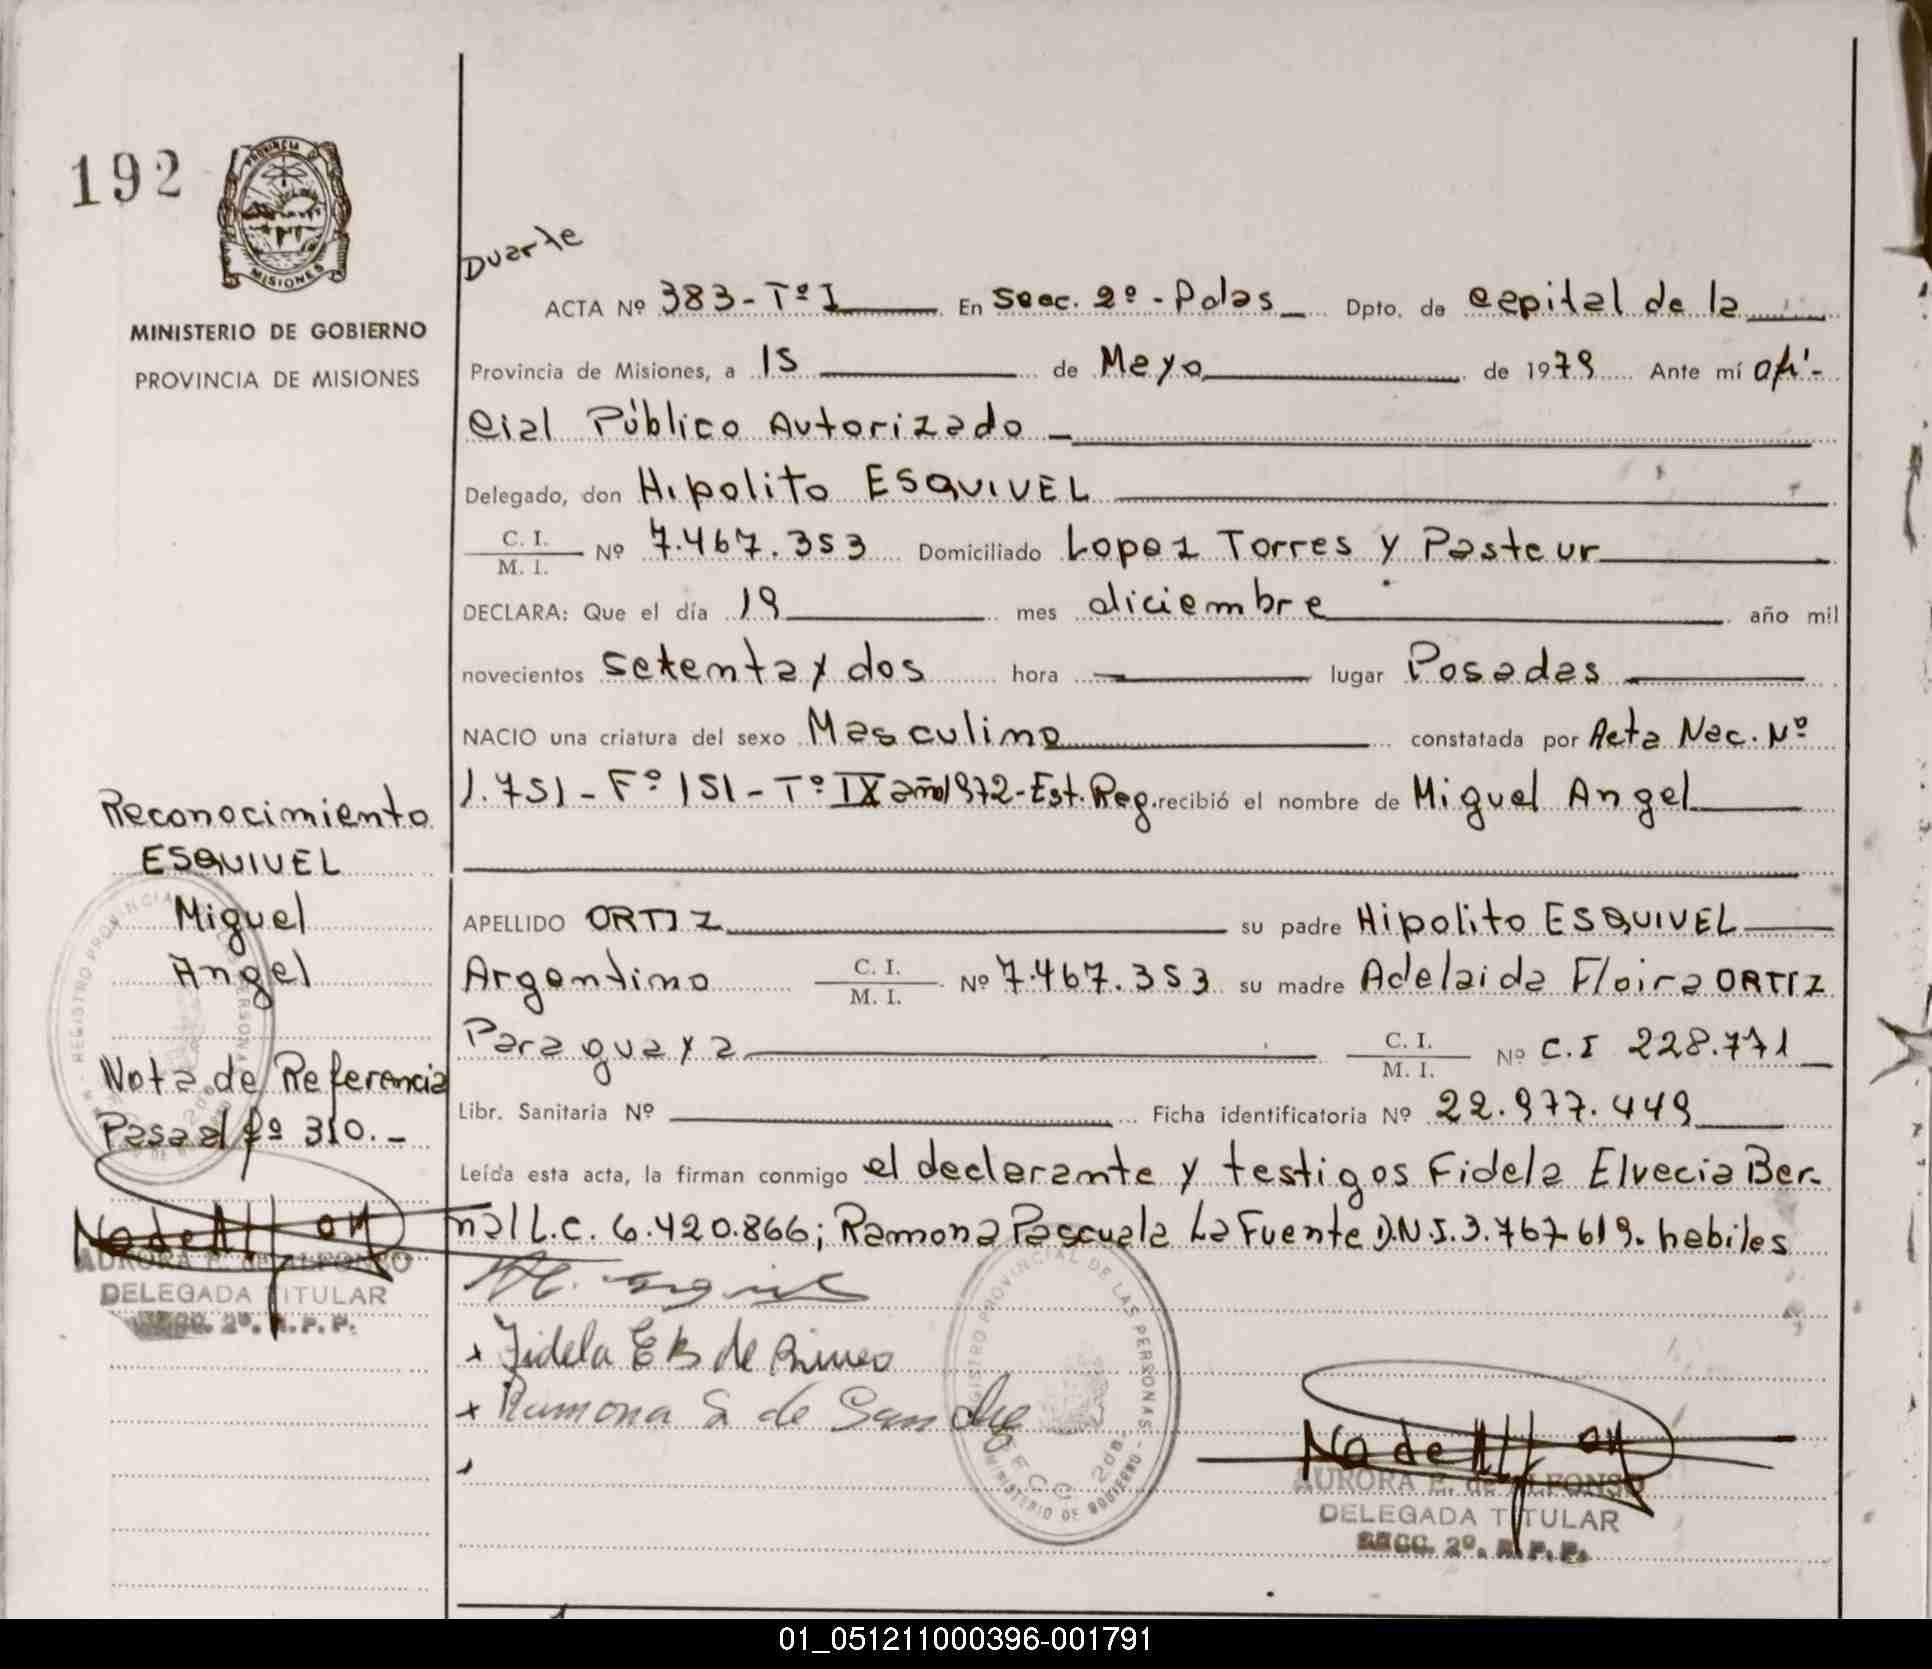 192
PROVINCIA D
MISIONES
MINISTERIO DE GOBIERNO
PROVINCIA DE MISIONES
Duarte
ACTA Nº 383-Tº I En Secc. 2º - Pdas Dpto. de capital de la
Provincia de Misiones, a 15 de Mayo de 1979 Ante mí ofi-
cial Público Autorizado
Delegado, don Hipolito ESQUIVEL
C. I.
M. I. Nº 7.467.353 Domiciliado Lopez Torres y Pasteur
DECLARA: Que el día 19 mes diciembre año mil
novecientos setenta y dos hora lugar Posadas
NACIO una criatura del sexo Masculino constatada por Acta Nac. Nº
1.751 - Fº 151 - Tº IX año 1972 - Est. Reg. recibió el nombre de Miguel Angel
APELLIDO ORTIZ su padre Hipolito ESQUIVEL
Argentino C. I.
M. I. Nº 7.467.353 su madre Adelaida Floira ORTIZ
Paraguaya C. I.
M. I. Nº C.I 228.771
Libr. Sanitaria Nº Ficha identificatoria Nº 22.977.449
Leída esta acta, la firman conmigo el declarante y testigos Fidela Elvecia Ber-
nal L.C. 6.420.866; Ramona Pascuala La Fuente D.N.I. 3.767.619. habiles
x Fidela E B de
x Ramona S de
REGISTRO PROVINCIAL DE LAS PERSONAS
SECC. 2da
MINISTERIO DE GOBIERNO
AURORA E. de ALFONSO
DELEGADA TITULAR
SECC. 2º. R. P. P.
Reconocimiento
ESQUIVEL
Miguel
Angel
Nota de Referencia
Pasa al fº 310.-
AURORA E. de ALFONSO
DELEGADA TITULAR
SECC. 2º. R. P. P.
01_051211000396-001791